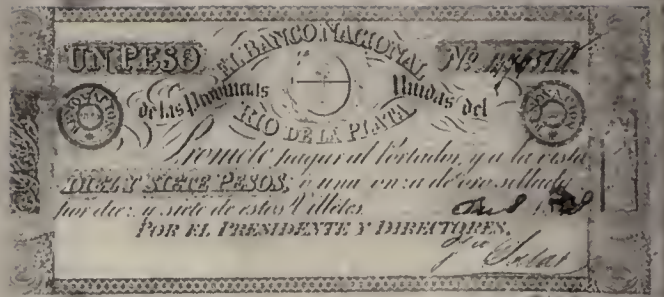 EL BANCO NACIONAL
UN PESO Nº
de las Provincias Unidas del
RENOVACION RENOVACION
RIO DE LA PLATA
Promete pagar al Portador, y a la vista
DIEZ Y SIETE PESOS, o una onza de oro sellado
por diez y siete de estos Villetes.
POR EL PRESIDENTE Y DIRECTORES,